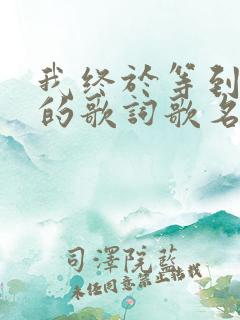 我终於等到
的歌詞歌名
司澤院藍
未经同意禁止转载